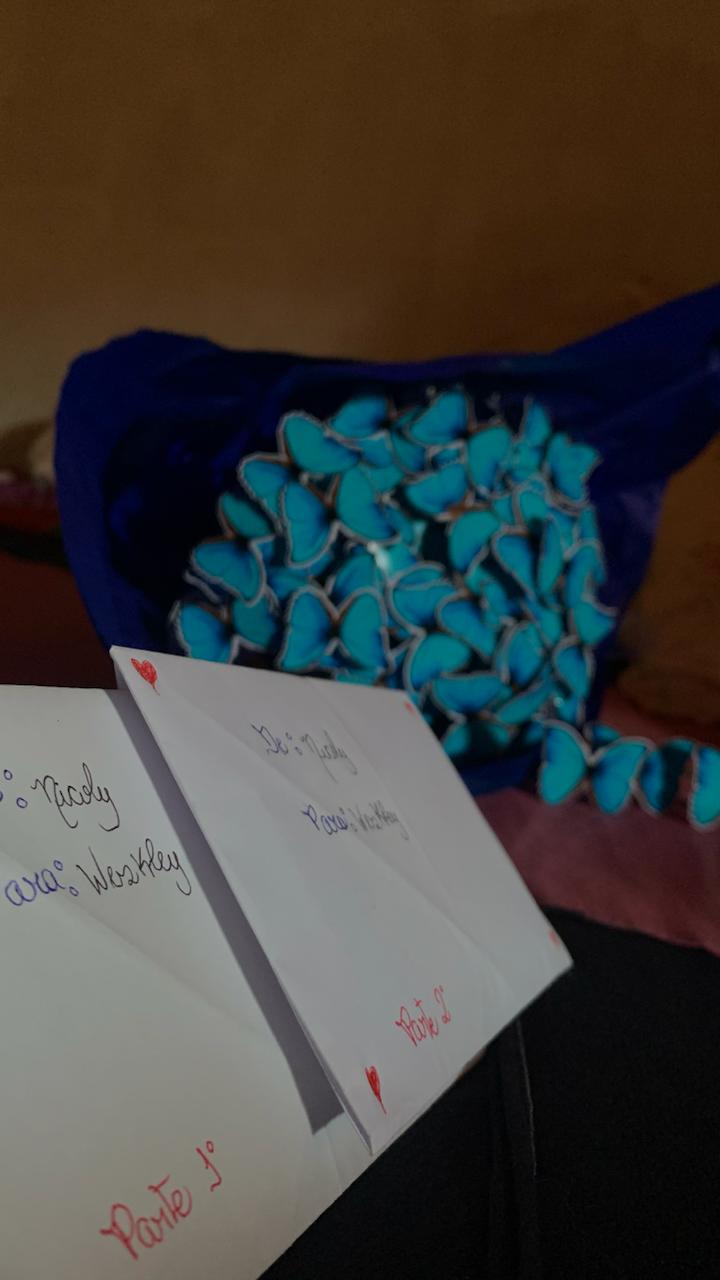 : Nicoly
ara: Weskley
Parte 1°
De: Nicoly
Para: Weskley
Parte 2°